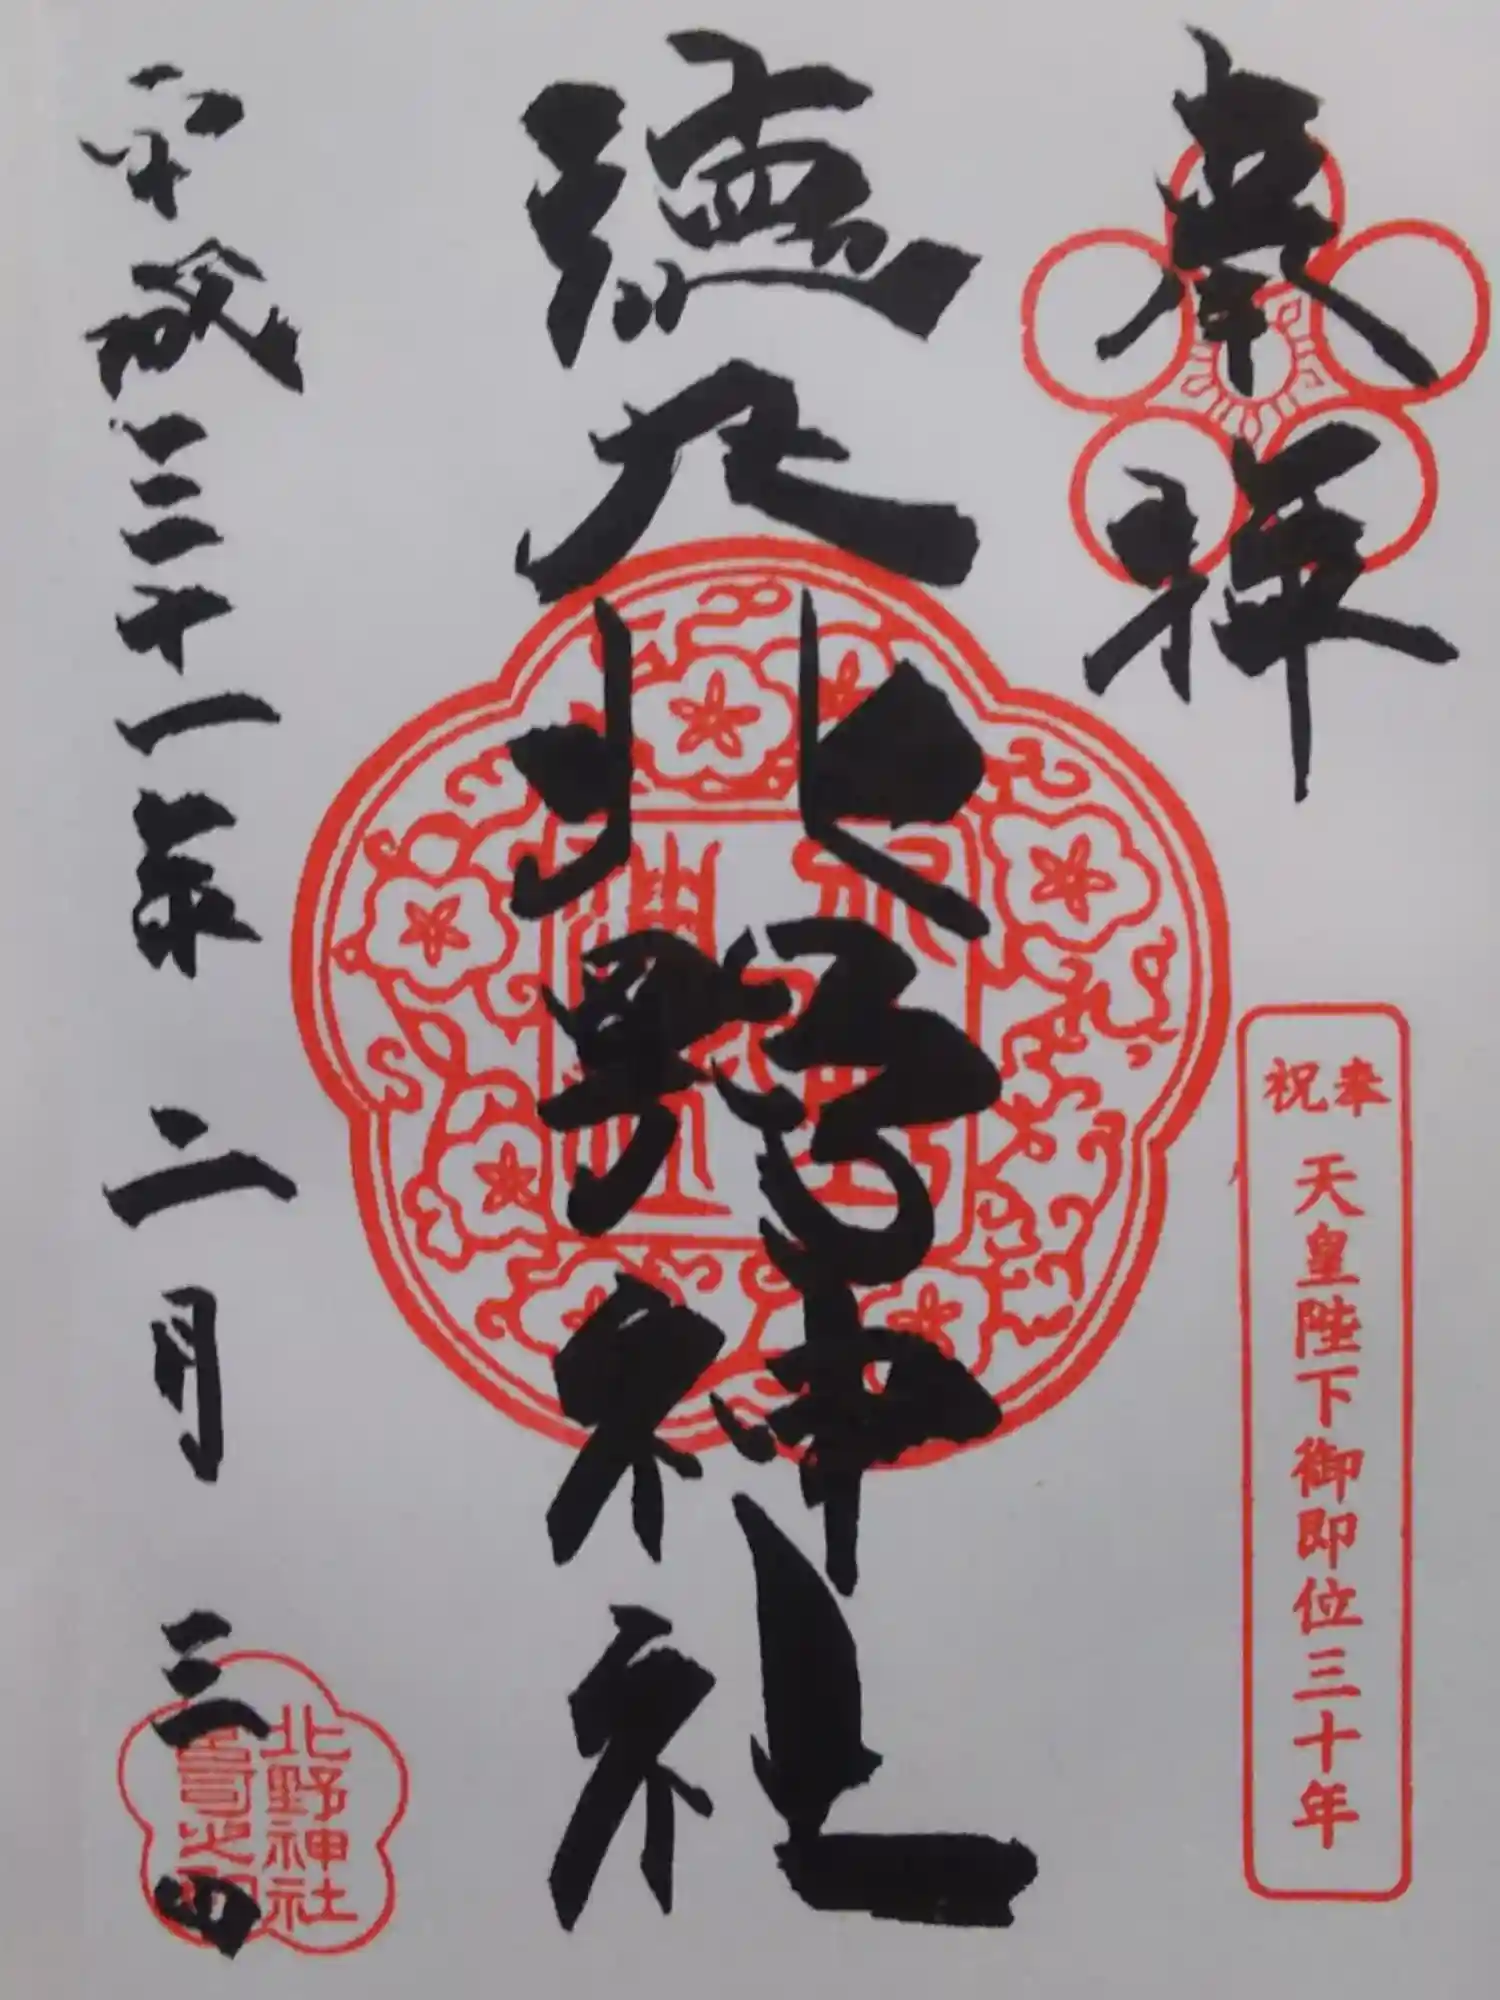 奉拝
奉祝 天皇陛下御即位三十年
徳丸北野神社
平成三十一年 二月 三日
北野神社